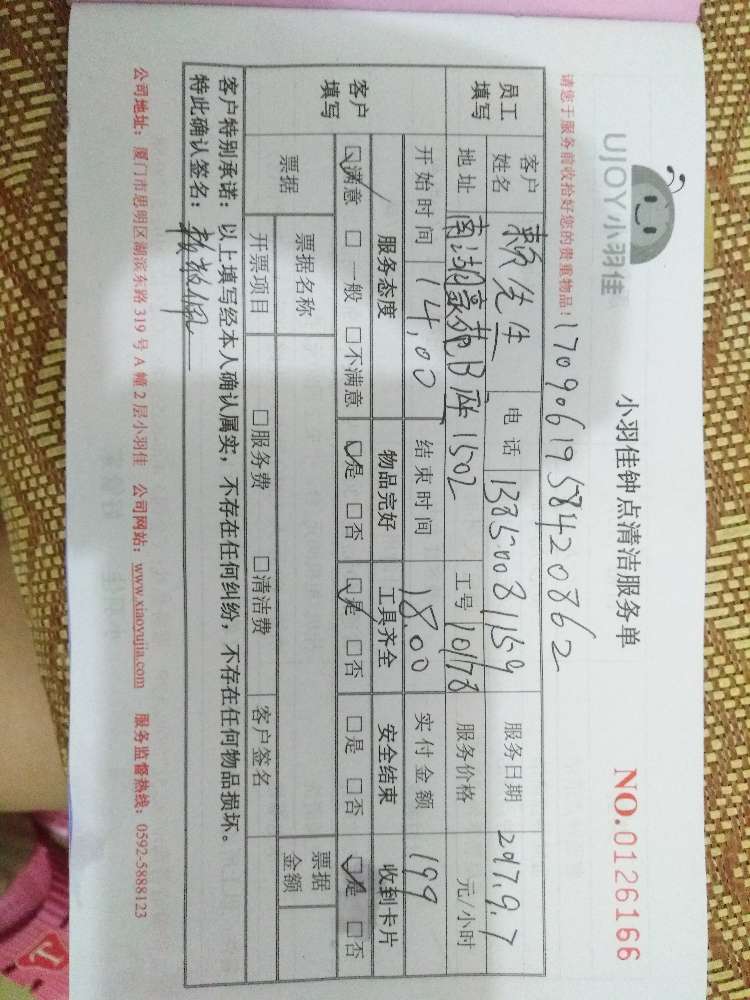 UJOY小羽佳
小羽佳钟点清洁服务单
NO.0126166
请您于服务前收拾好您的贵重物品!
1709061958420862
员工填写
客户姓名 赖先生 电话 13850081159 服务日期 2017.9.7
地址 南湖豪苑B座1502 工号 10178 服务价格 元/小时
开始时间 14.00 结束时间 18.00 实付金额 199
客户填写
服务态度 物品完好 工具齐全 安全结束 收到卡片
☑满意 □一般 □不满意 ☑是 □否 ☑是 □否 □是 □否 ☑是 □否
票据 票据名称 票据金额
开票项目 □服务费 □清洁费 客户签名
客户特别承诺:以上填写经本人确认属实,不存在任何纠纷,不存在任何物品损坏。
特此确认签名:
公司地址:厦门市思明区湖滨东路319号A幢2层小羽佳 公司网站:www.xiaoyujia.com 服务监督热线:0592-5888123